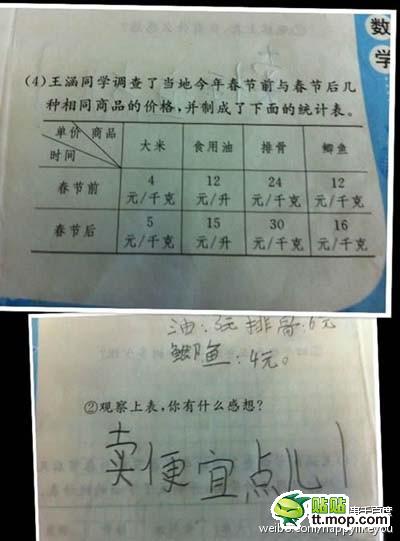 数
学
(4)王涵同学调查了当地今年春节前与春节后几
种相同商品的价格,并制成了下面的统计表。
单价 商品
时间
大米 食用油 排骨 鲫鱼
春节前 4 元/千克 12 元/升 24 元/千克 12 元/千克
春节后 5 元/千克 15 元/升 30 元/千克 16 元/千克
油:3元 排骨:6元
鲫鱼:4元。
②观察上表,你有什么感想?
卖便宜点儿!
贴贴
tt.mop.com
weibo.com/happylikeyou